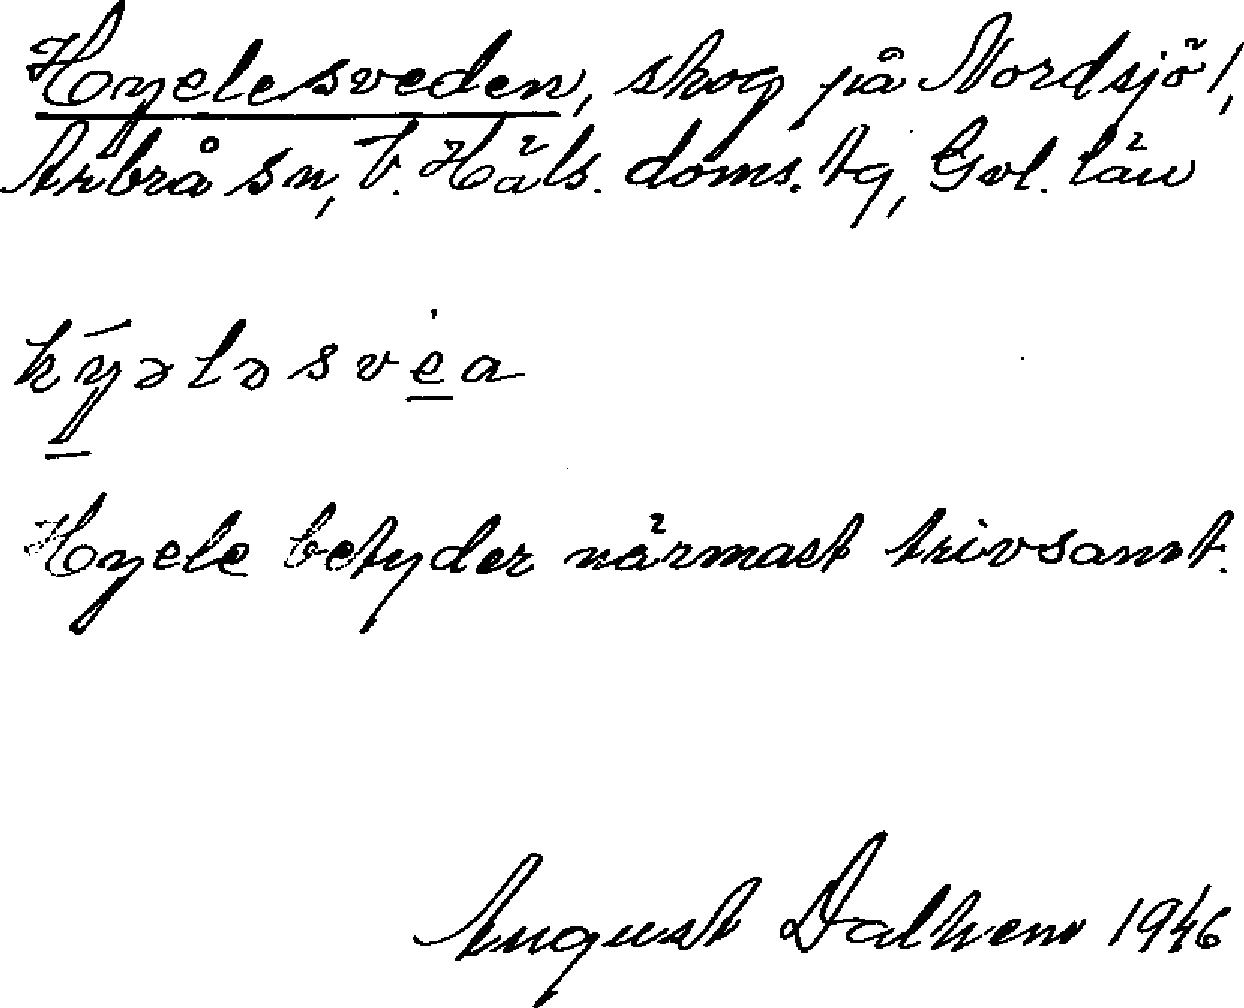 Hyelesveden, skog på Nordsjö 1,
Arbrå sn, V. Häls. doms. tg, Gvl. län
kȳələsvėa
Hyele betyder närmast trivsamt.
August Dalhem 1946